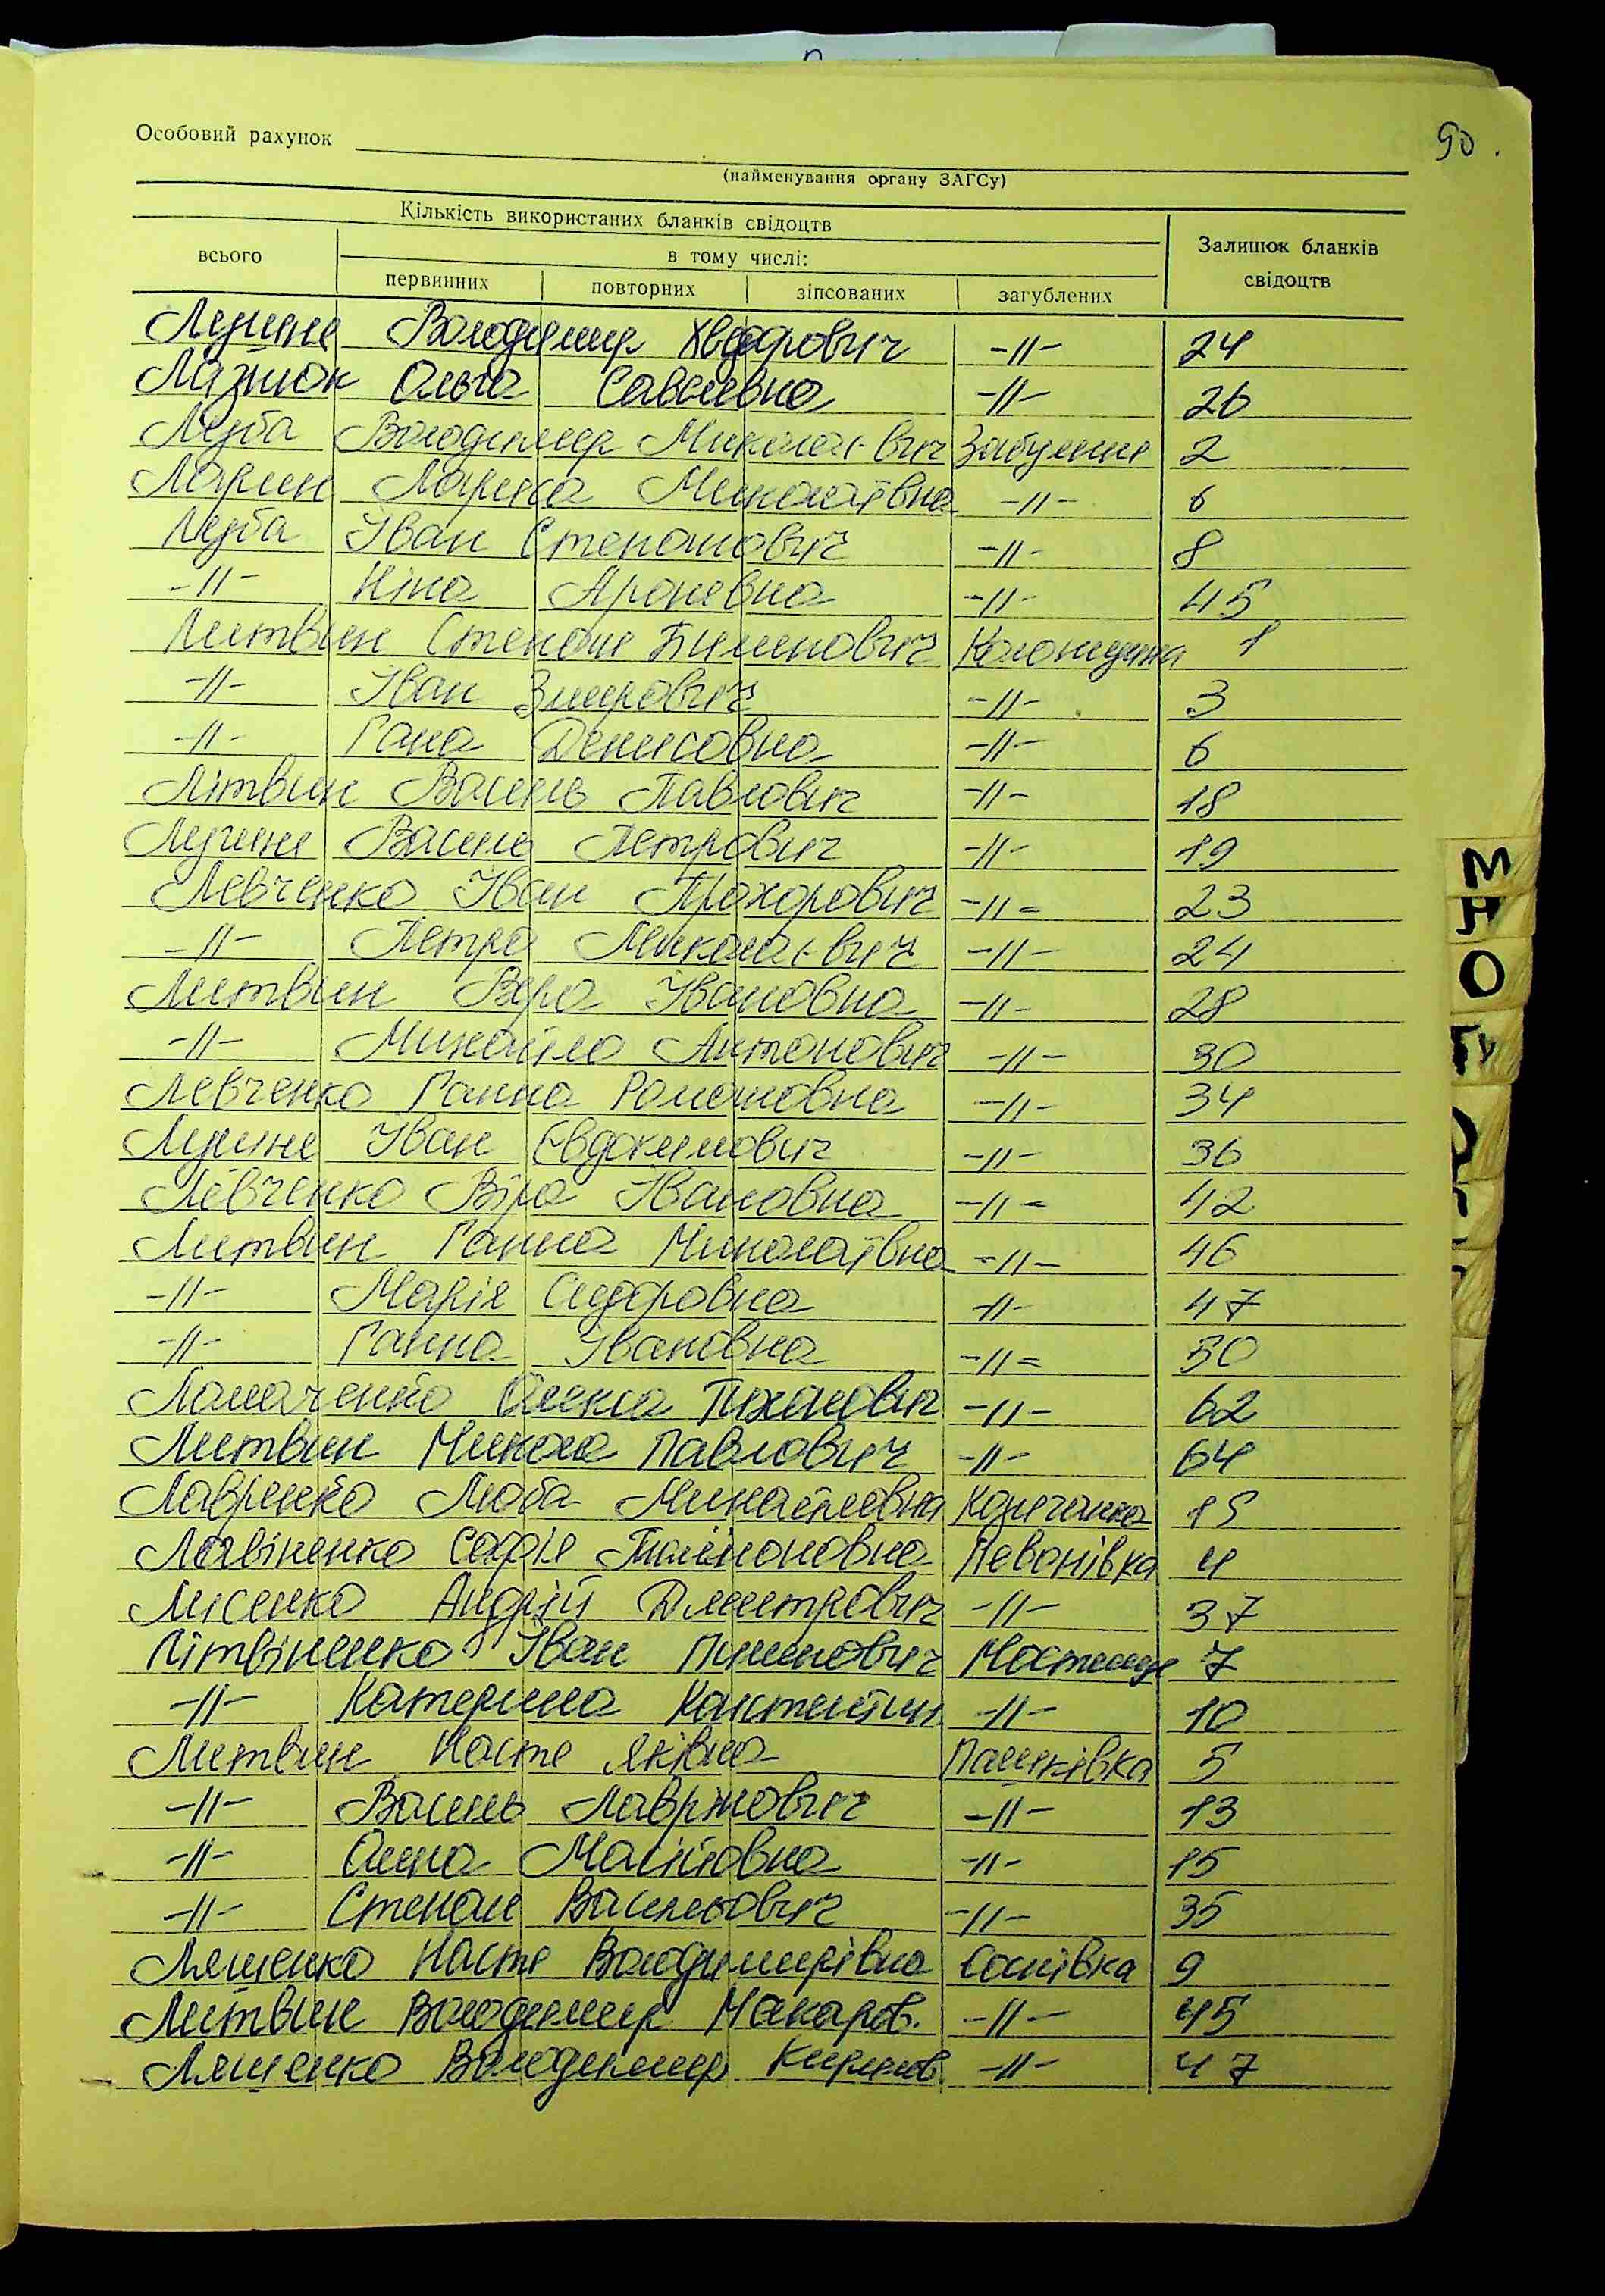 90.
Особовий рахунок
(найменування органу ЗАГСу)
Кількість використаних бланків свідоцтв
Залишок бланків свідоцтв
всього
в тому числі:
первинних повторних зіпсованих загублених
Лущик Володимир Хведорович -//- 24
Лазнюк Ольга Савелевна -//- 26
Лузба Володимир Миколаєвич Забуяння 2
Ларин Лариса Миколаївна -//- 6
Лузба Іван Степанович -//- 8
-//- Ніна Ароневна -//- 45
Литвин Степан Пименович Колонщина 1
-//- Іван Зинрович -//- 3
-//- Гана Денисовна -//- 6
Літвин Василь Павлович -//- 18
Василь Петрович -//- 19
Левченко Іван Прохорович -//- 23
-//- Петро Миколаєвич -//- 24
Литвин Вера Івановна -//- 28
-//- Михайло Антонович -//- 30
Левченко Ганна Романовна -//- 34
Іван Євдокимович -//- 36
Левченко Віра Івановна -//- 42
Литвин Ганна Миколаївна -//- 46
-//- Марія Сидоровна -//- 47
-//- Ганна Івановна -//- 50
Ломаченко Олекса Тихонович -//- 62
Литвин Микола Павлович -//- 64
Лавренко Люба Михайловна 15
Софія Левонівка 4
Лисенко Андрій Дмитрович -//- 37
Літвіненко Іван Пименович Мостище 7
-//- Катерина Константин -//- 10
Литвин Настя Яківна Пашківка 5
-//- Василь Лаврінович -//- 13
-//- Анна -//- 15
-//- Степан Василович -//- 35
Лященко Настя Володимирівна Соснівка 9
Литвин Володимир Макаров. -//- 45
Лященко Володимир Кирилов. -//- 47
М
Н
О